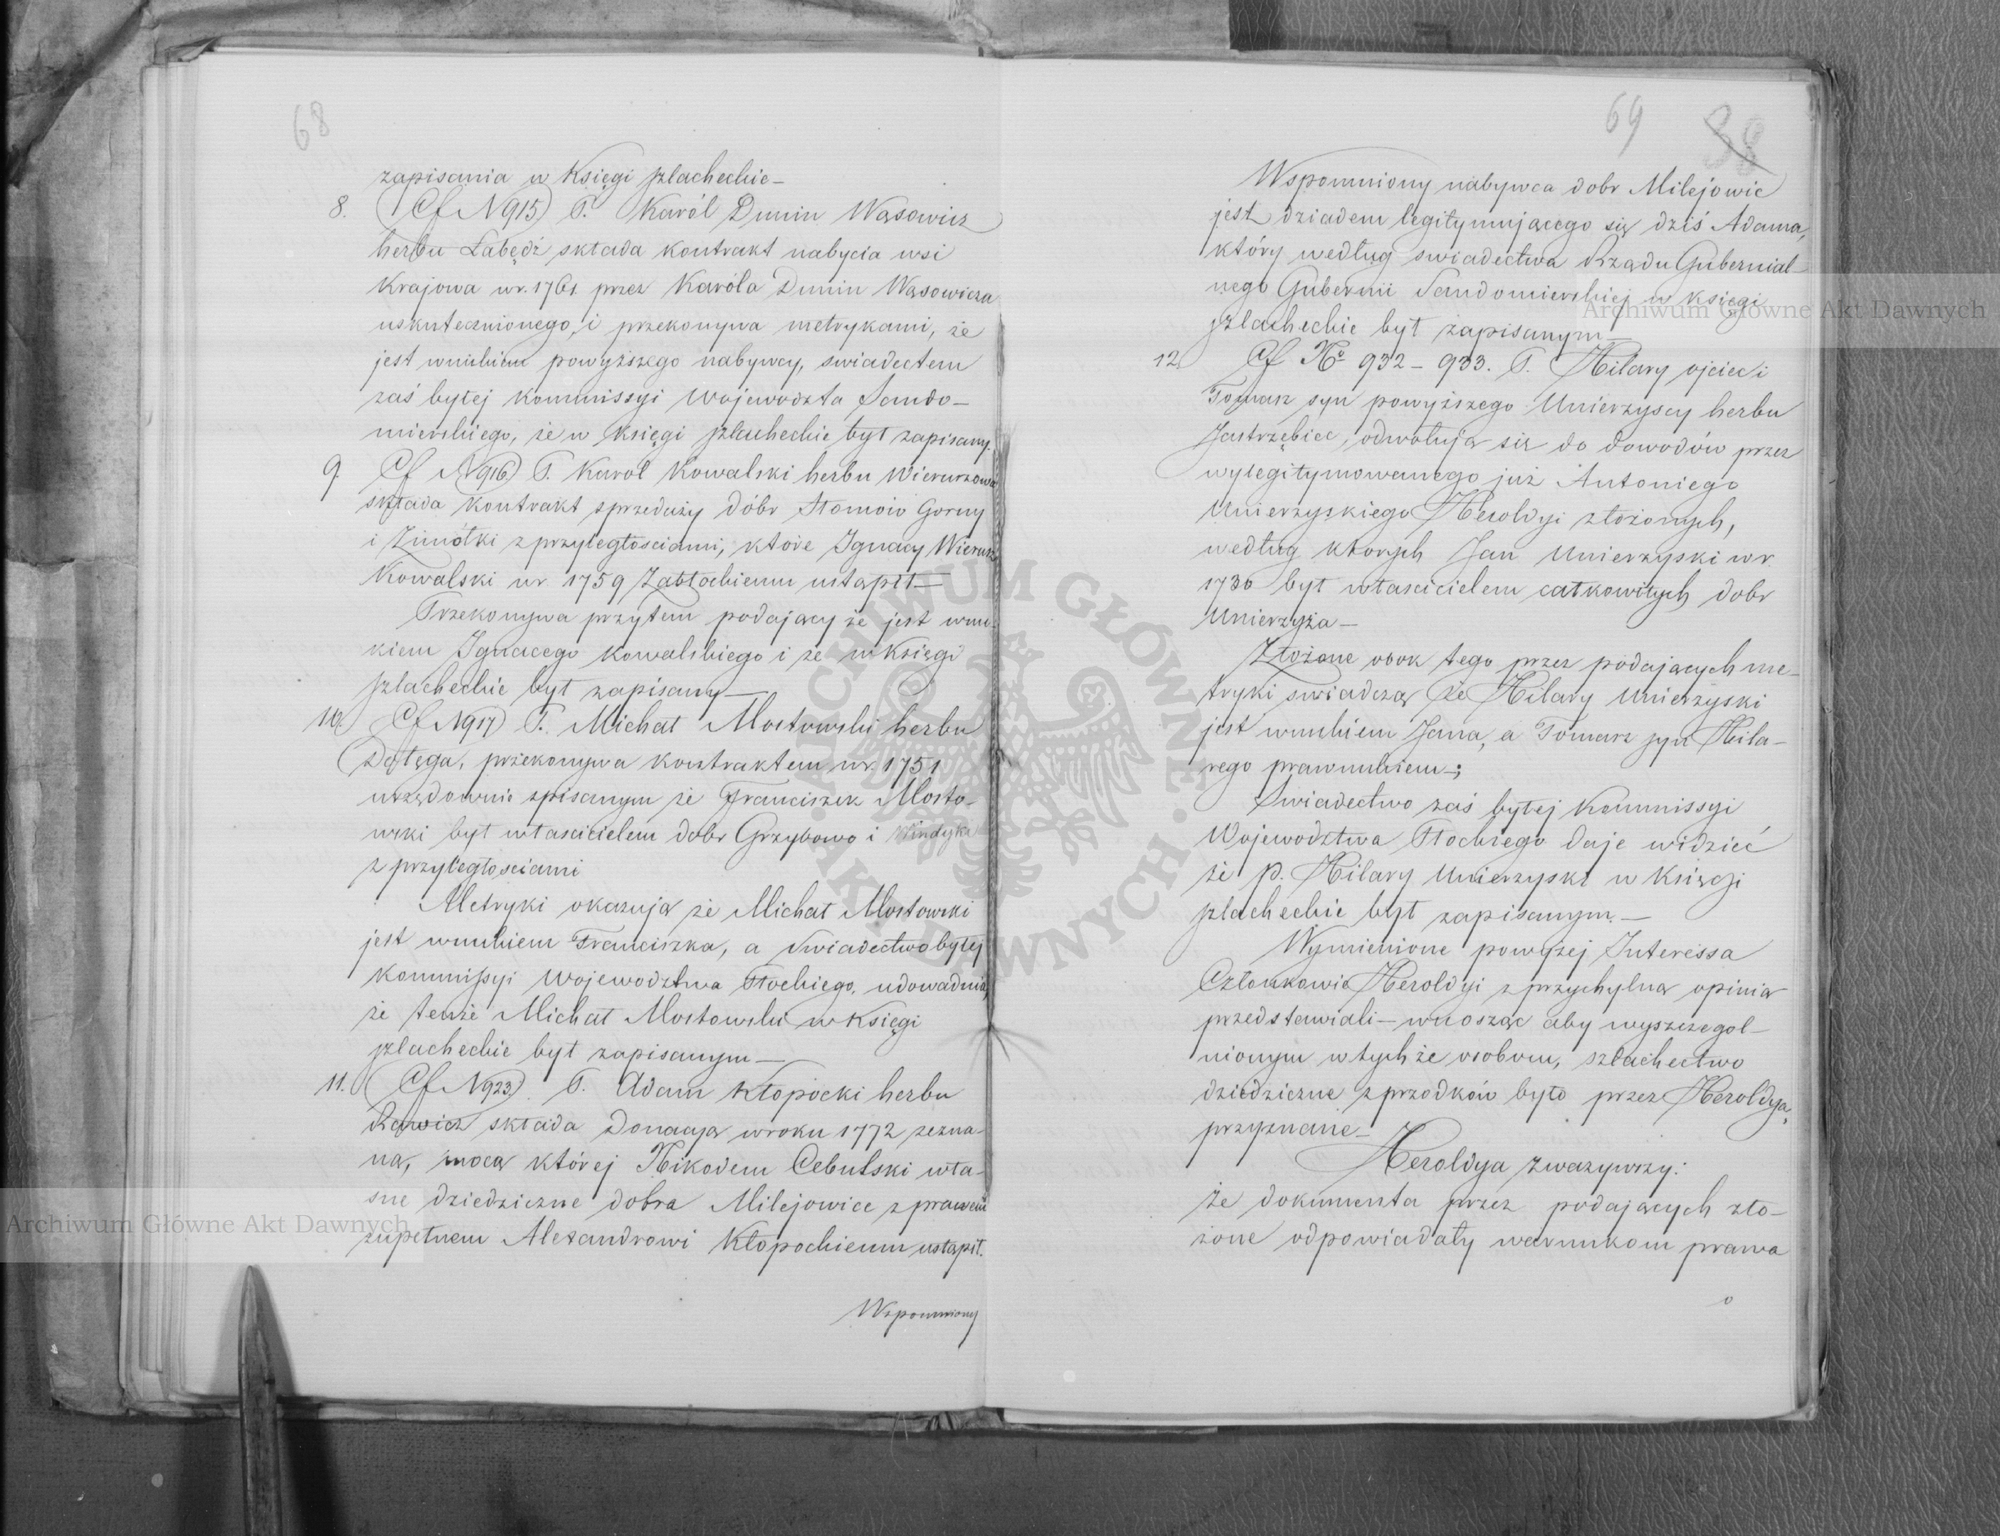 68
zapisania w Księgi szlacheckie—
8. (Cf N 915) P. Karól Dunin Wąsowicz
herbu Łabędź składa kontrakt nabycia wsi
Krajowa w r. 1761 przez Karóla Dunin Wąsowicza
uskutecznionego, i przekonywa metrykami, że
jest wnukiem powyższego nabywcy, swiadectem
zaś byłej Kommissyi Województa Sando—
mierskiego, że w księgi szlacheckie był zapisany.
9. Cf N 916) P. Karol Kowalski herbu Wieruszowa
składa Kontrakt sprzedaży dóbr Słomów Gorny
i Zimotki z przyległosciami, które Ignacy Wierusz
Kowalski w r. 1759 Zabłockiemu ustąpił—
Przekonywa przytem podający że jest wnu-
kiem Ignacego Kowalskiego i że w Księgi
szlacheckie był zapisany—
10. Cf N 917) P. Michał Mostowski herbu
Dołęga, przekonywa kontraktem w r. 1751
urzędownie spisanym że Franciszek Mosto-
wski był włascicielem dobr Grzybowo i Windyka
z przyległosciami
Metryki okazują że Michał Mostowski
jest wnukiem Franciszka, a Swiadectwo byłej
Kommissyi Województwa Płockiego, udowadnia,
że tenże Michał Mostowski w Księgi
szlacheckie był zapisanym—
11. (Cf N 923) P. Adam Kłopocki herbu
Rawicz składa Donacyą w roku 1772 zezna-
ną, mocą której Nikodem Cebulski wła-
sne dziedziczne dobra Milejowice z prawem
zupełnem Alexandrowi Kłopockiemu ustąpił.
Wspomniony
69 38
Wspomniony nabywca dobr Milejowic
jest dziadem legitymującego się dziś Adama,
który według swiadectwa Rządu Gubernial—
nego Gubernii Sandomierskiej w księgi
szlacheckie był zapisanym—
12. Cf No 932 — 933. P. Hilary ojciec i
Tomasz syn powyższego Unierzyscy herbu
Jastrzębiec, odwołują się do dowodów przez
wylegitymowanego już Antoniego
Unierzyskiego Heroldyi złożonych,
według ktorych Jan Unierzyski w r.
1730 był włascicielem całkowitych dobr
Unierzyża—
Złożone obok tego przez podających me-
tryki swiadczą że Hilary Unierzyski
jest wnukiem Jana, a Tomasz syn Hila—
rego prawnukiem—;
Swiadectwo zaś byłej Kommissyi
Województwa Płockiego daje widzieć
że P. Hilary Unierzyski w Księgi
szlacheckie był zapisanym.—
Wymienione powyżej Interessa
Członkowie Heroldyi z przychylną opinią
przedstawiali — wnosząc aby wyszczegol—
nionym w tychże osobom, szlachectwo
dziedziczne z przodków było przez Heroldyą
przyznane—
Heroldya zważywszy:
że dokumenta przez podających zło—
żone odpowiadały warunkom prawa
o
Archiwum Główne Akt Dawnych
Archiwum Główne Akt Dawnych
ARCHIWUM GŁÓWNE · AKT DAWNYCH ·